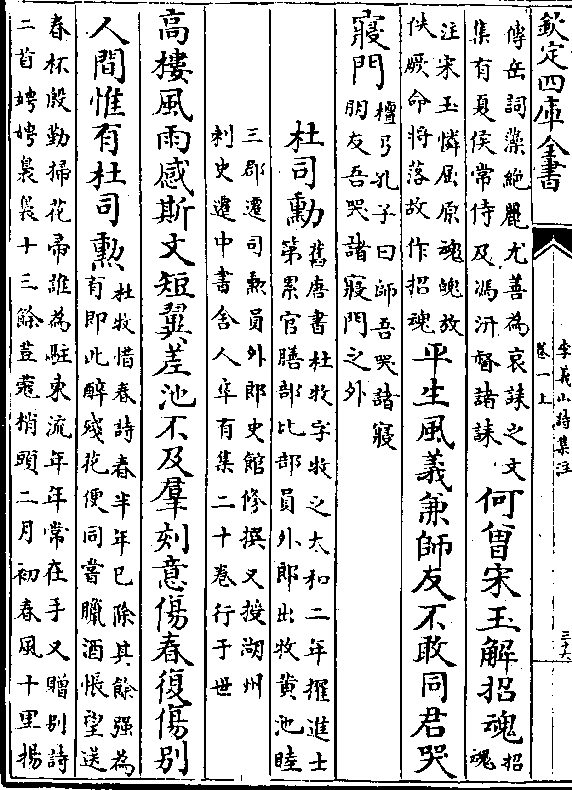 欽定四庫全書
李義山詩集注
卷一上
三十六
傳岳詞藻絶麗尤善為哀誄之文
集有夏侯常侍及馮汧督諸誄
何曾宋玉解招魂
招
魂
注宋玉憐屈原魂魄放
佚厥命將落故作招魂
平生風義兼師友不敢同君哭
寢門
檀弓孔子曰師吾哭諸寢
朋友吾哭諸寢門之外
杜司勳
舊唐書杜牧字牧之太和二年擢進士
第累官膳部比部員外郎出牧黄池睦
三郡遷司勳員外郎史館修撰又授湖州
刺史遷中書舍人卒有集二十卷行于世
高樓風雨感斯文短翼差池不及羣刻意傷春復傷别
人間惟有杜司勲
杜牧惜春詩春半年已除其餘强為
有即此醉殘花便同嘗臘酒悵望送
春杯殷勤掃花帚誰為駐東流年年常在手又贈别詩
二首娉娉裊裊十三餘荳蔲梢頭二月初春風十里揚